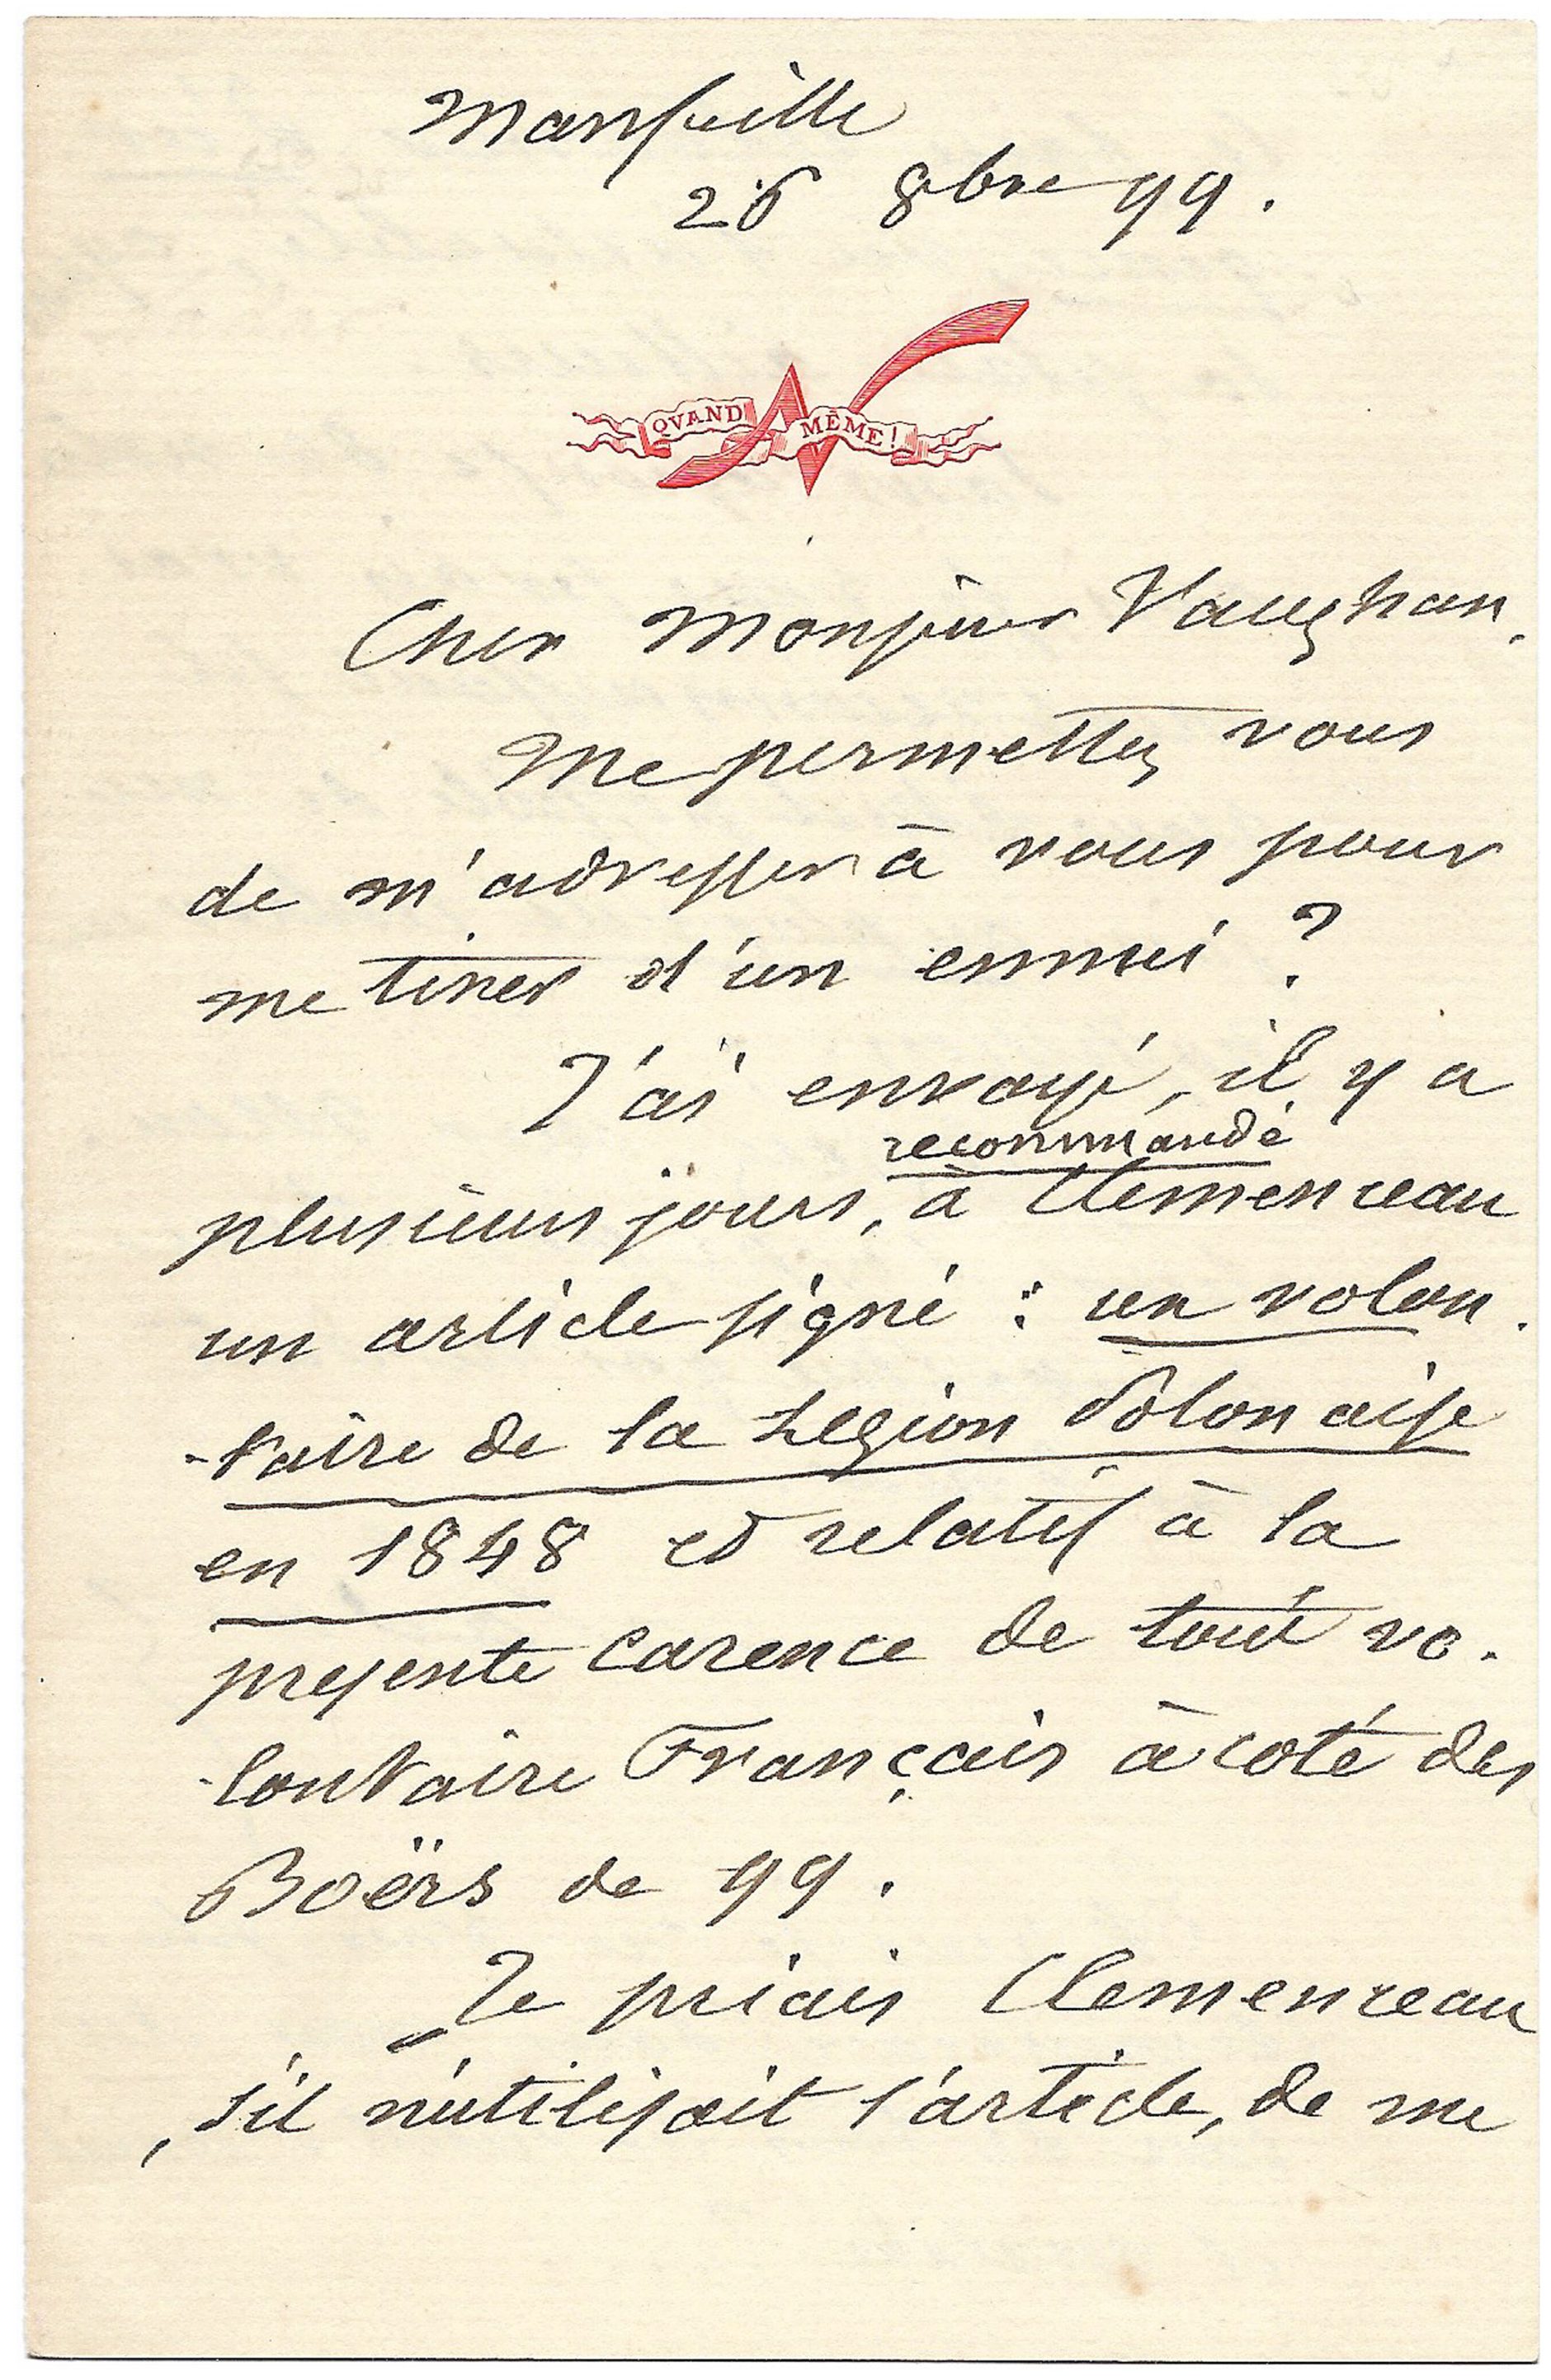 Marseille
26 8bre 99.
QVAND MÊME!
Cher Monsieur Vaughan,
Me permettez vous
de m'adresser à vous pour
me tirer d'un ennui ?
J'ai envoyé, il y a
recommandé
plusieurs jours, à Clemenceau
un article signé : un volon-
-taire de la Légion Polonaise
en 1848 et relatif à la
présente carence de tout vo-
-lontaire Français à coté des
Boërs de 99.
Je priais Clemenceau
s'il n'utilisait l'article, de me